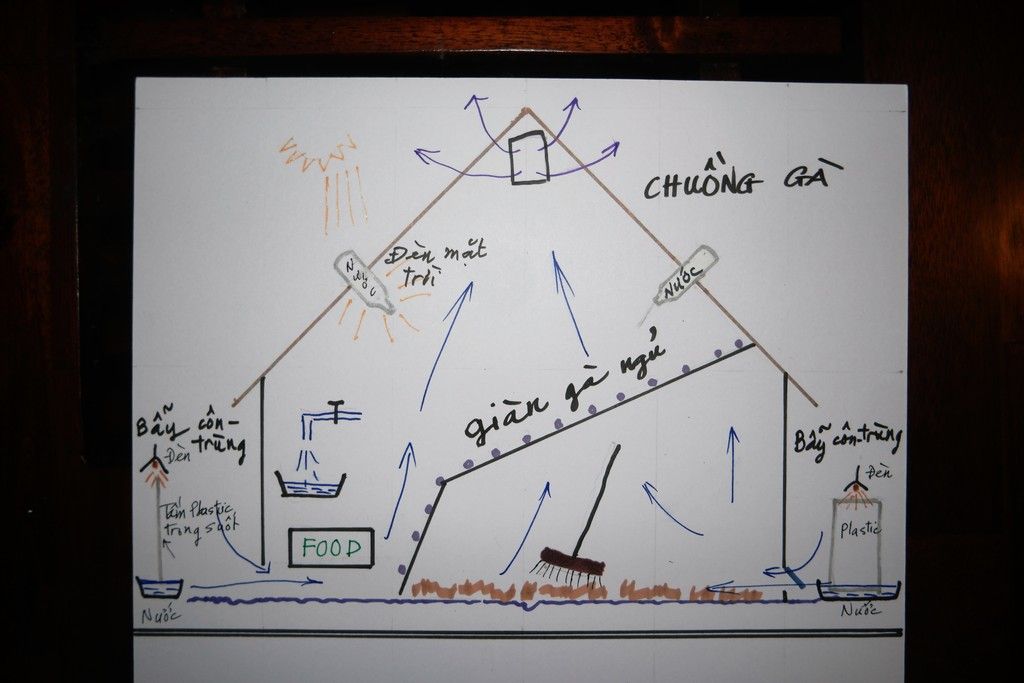 CHUỒNG GÀ
Đèn mặt
trời
Nước
Nước
giàn gà ngủ
Bẫy côn-
trùng
Đèn
Tấm Plastic
trong suốt
Nước
FOOD
Bẫy côn-trùng
Đèn
Plastic
Nước